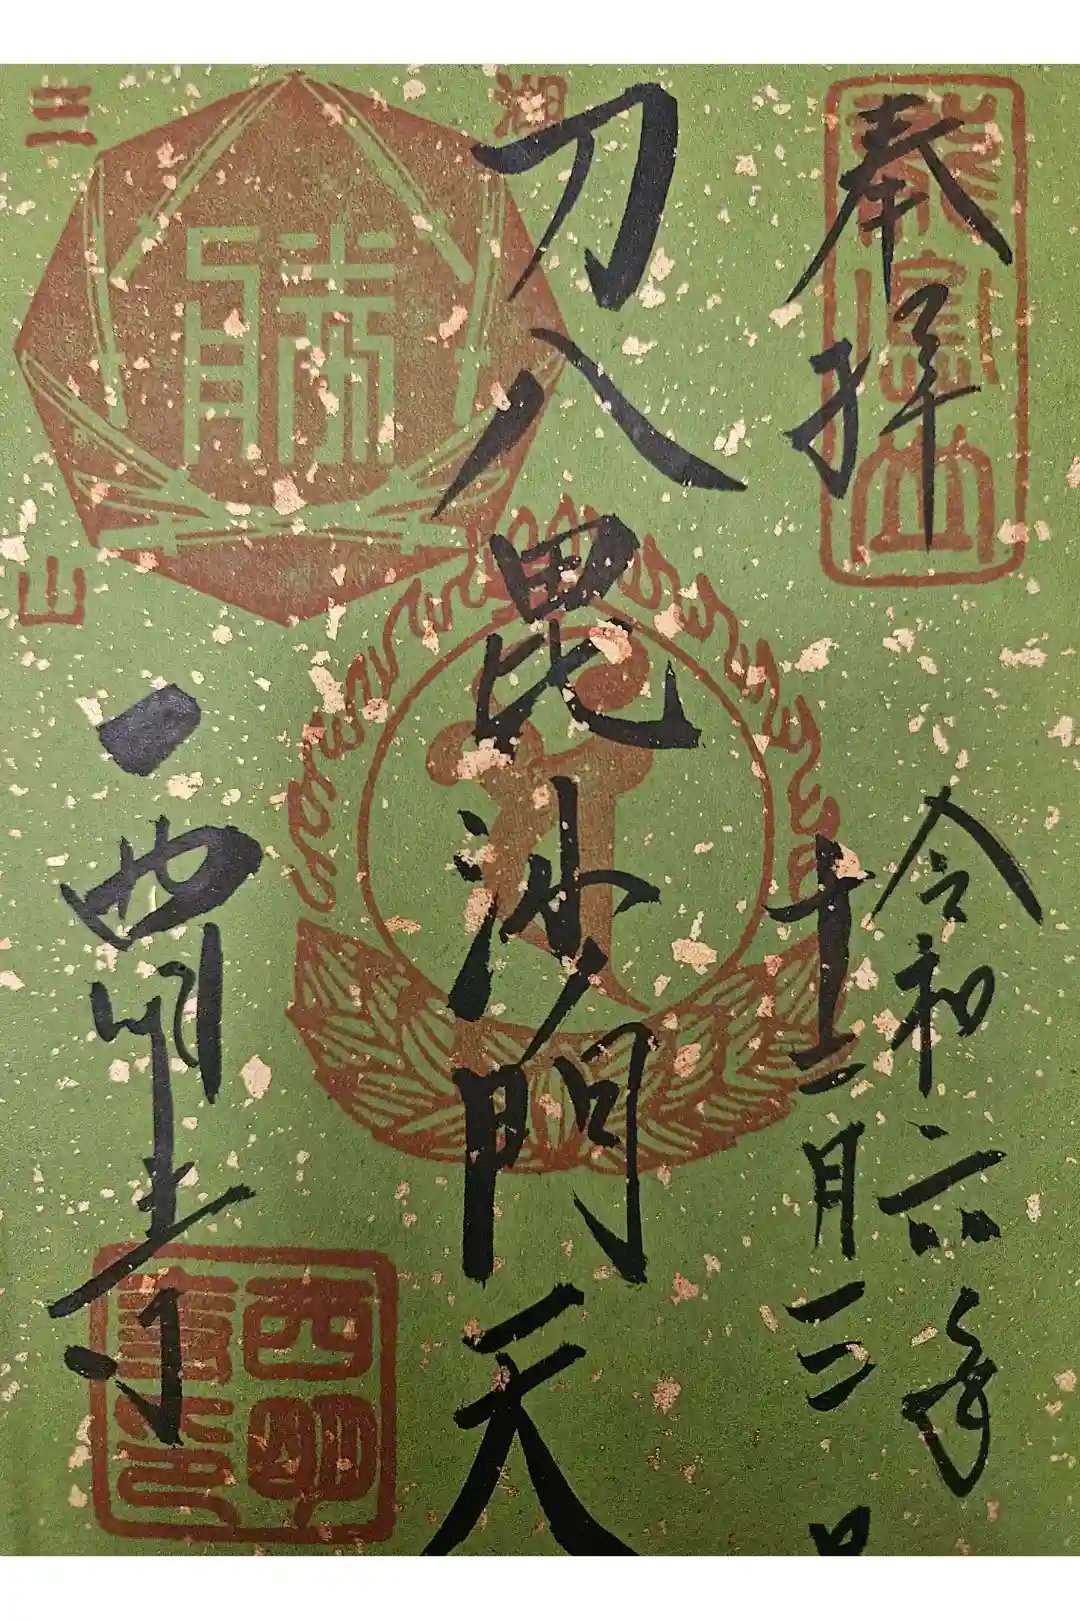 奉拝
龍應山
令和六年
十二月三日
刀八毘沙門天
湖
三
山
勝
西明寺
西明寺印